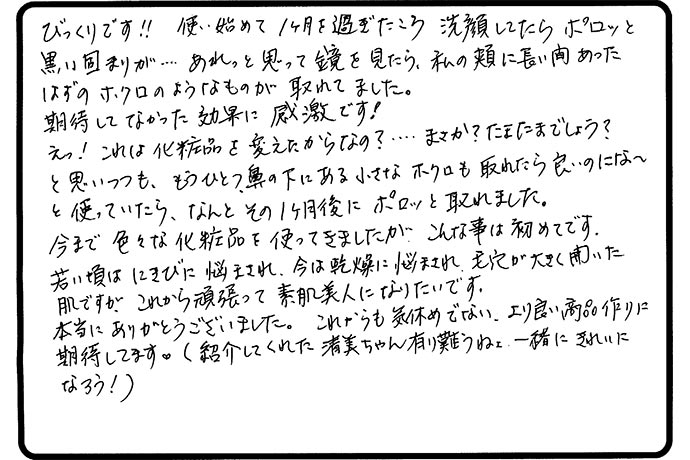 びっくりです!! 使い始めて1ヶ月を過ぎたころ 洗顔してたらポロッと
黒い固まりが…. あれっと思って鏡を見たら、私の頬に長い間あった
はずのホクロのようなものが 取れてました。
期待してなかった効果に 感激です!
えっ!これは化粧品を変えたからなの?…. まさか?たまたまでしょう?
と思いつつも、もうひとつ鼻の下にある小さなホクロも取れたら良いのにな〜
と使っていたら、なんとその1ヶ月後にポロッと取れました。
今まで色々な化粧品を使ってきましたが こんな事は初めてです.
若い頃はにきびに悩まされ、今は乾燥に悩まされ、毛穴が大きく開いた
肌ですが これから頑張って 素肌美人になりたいです.
本当にありがとうございました。 これからも気休めでない、より良い商品作りに
期待してます。(紹介してくれた 渚美ちゃん有り難うねェ 一緒に きれいに
なろう!)